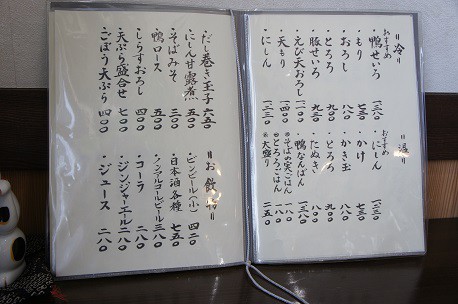 〃冷〃
おすすめ
・鴨せいろ 一三八〇
・もり
・おろし 八八〇
・とろろ
・豚せいろ
・えび天おろし
・天もり 一四〇〇
・にしん
〃温〃
おすすめ
・にしん
・かけ
・かき玉
・とろろ
・たぬき
・鴨なんばん 一三八〇
◎そばの実ごはん
◎とろろごはん
◎大盛り 二五〇
・だし巻き玉子 六五〇
・にしん甘露煮
・そばみそ
・鴨ロース 五〇〇
・しらすおろし 四〇〇
・天ぷら盛合せ 七〇〇
・ごぼう天ぷら 四〇〇
〃お飲物〃
・ビンビール(小) 四二〇
・日本酒各種 七五〇
・ノンアルコールビール 三八〇
・コーラ 二八〇
・ジンジャーエール 二八〇
・ジュース 二八〇